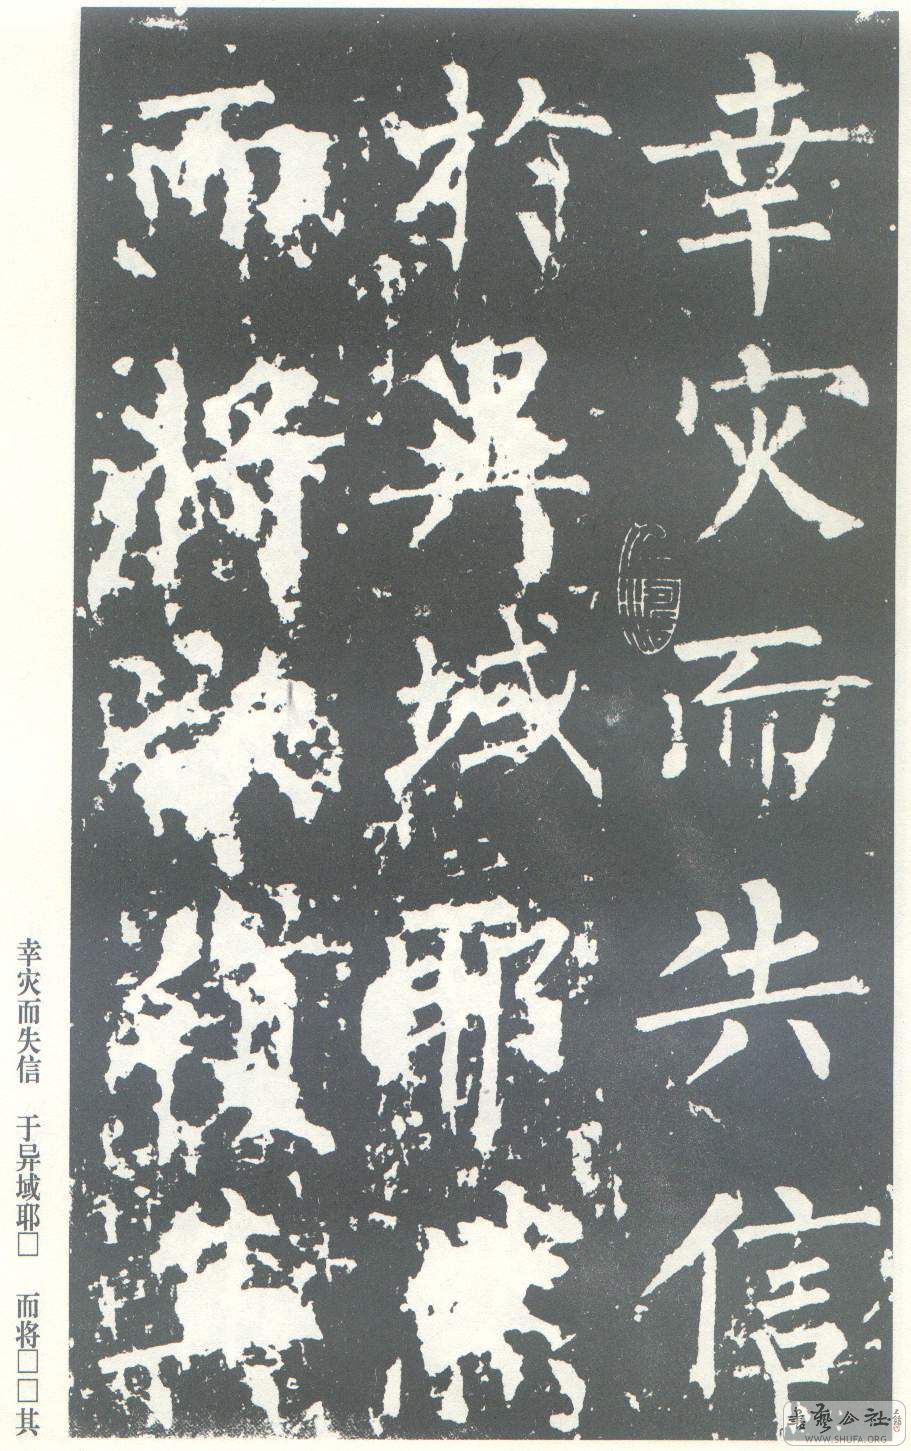 幸灾而失信
於異域耶
而將
幸灾而失信 于异域耶□ 而将□□其
書藝公社
WWW.SHUFA.ORG